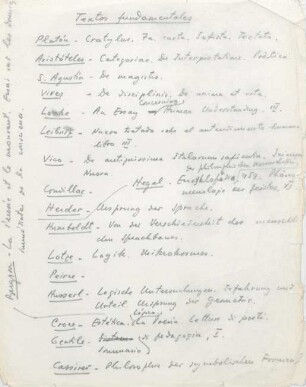 Textos fundamentales
Platón. Cratylus, 7a carta, Sofista, Teeteto,
Aristóteles. Categorias, De Interpretatione, Poética
S. Agustín - De magistro.
Vives - De disciplinis. De anima et vita
Locke - An Essay concerning Human Understanding. III.
Leibniz - Nuevo tratado sobre el entendimiento humano
libro III.
Vico - De antiquissima Italorum sapientia.
Nuova
Condillac -
Hegel. Enzyklopädie, 459. Phäno-
menologie des Geistes, VI
Herder - Ursprung der Sprache.
Humboldt - Von der Verschiedenheit des menschli-
chen Sprachbaues.
Lotze - Logik. Mikrokosmos.
Peirce -
Husserl - Logische Untersuchungen. Erfahrung und
Urteil. Ursprung der Geometrie.
Croce - Estética. La Poesia. Logica.
Gentile - Sistema di pedagogia, I.
Sommario
Cassirer - Philosophie der symbolischen Formen
Bergson - La pensée et le mouvant. Essai sur les données
immédiates de la conscience.